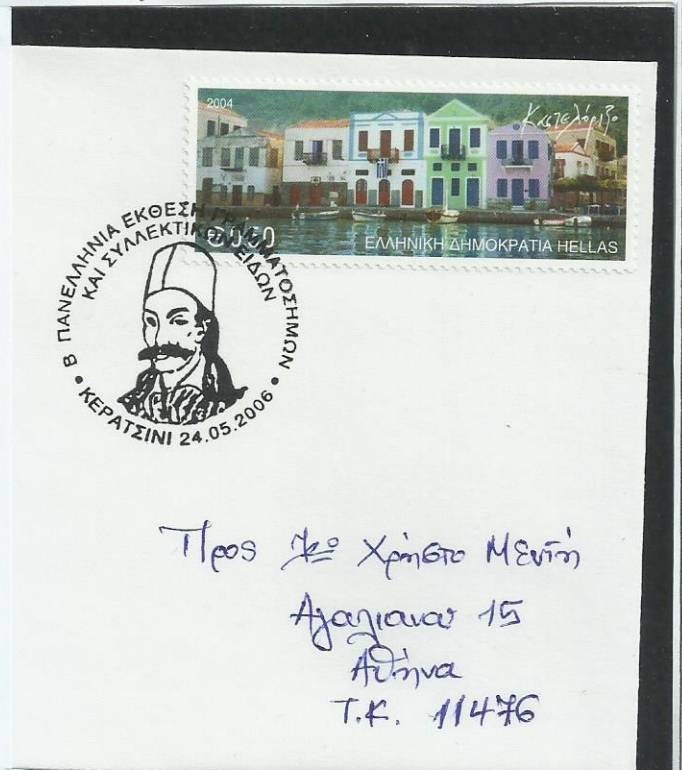 2004
Καστελόριζο
€0,50
ΕΛΛΗΝΙΚΗ ΔΗΜΟΚΡΑΤΙΑ HELLAS
Β ΠΑΝΕΛΛΗΝΙΑ ΕΚΘΕΣΗ ΓΡΑΜΜΑΤΟΣΗΜΩΝ
ΚΑΙ ΣΥΛΛΕΚΤΙΚΩΝ ΕΙΔΩΝ
• ΚΕΡΑΤΣΙΝΙ 24.05.2006 •
Προς Χρήστο Μεντή
15
Αθήνα
Τ.Κ. 11476